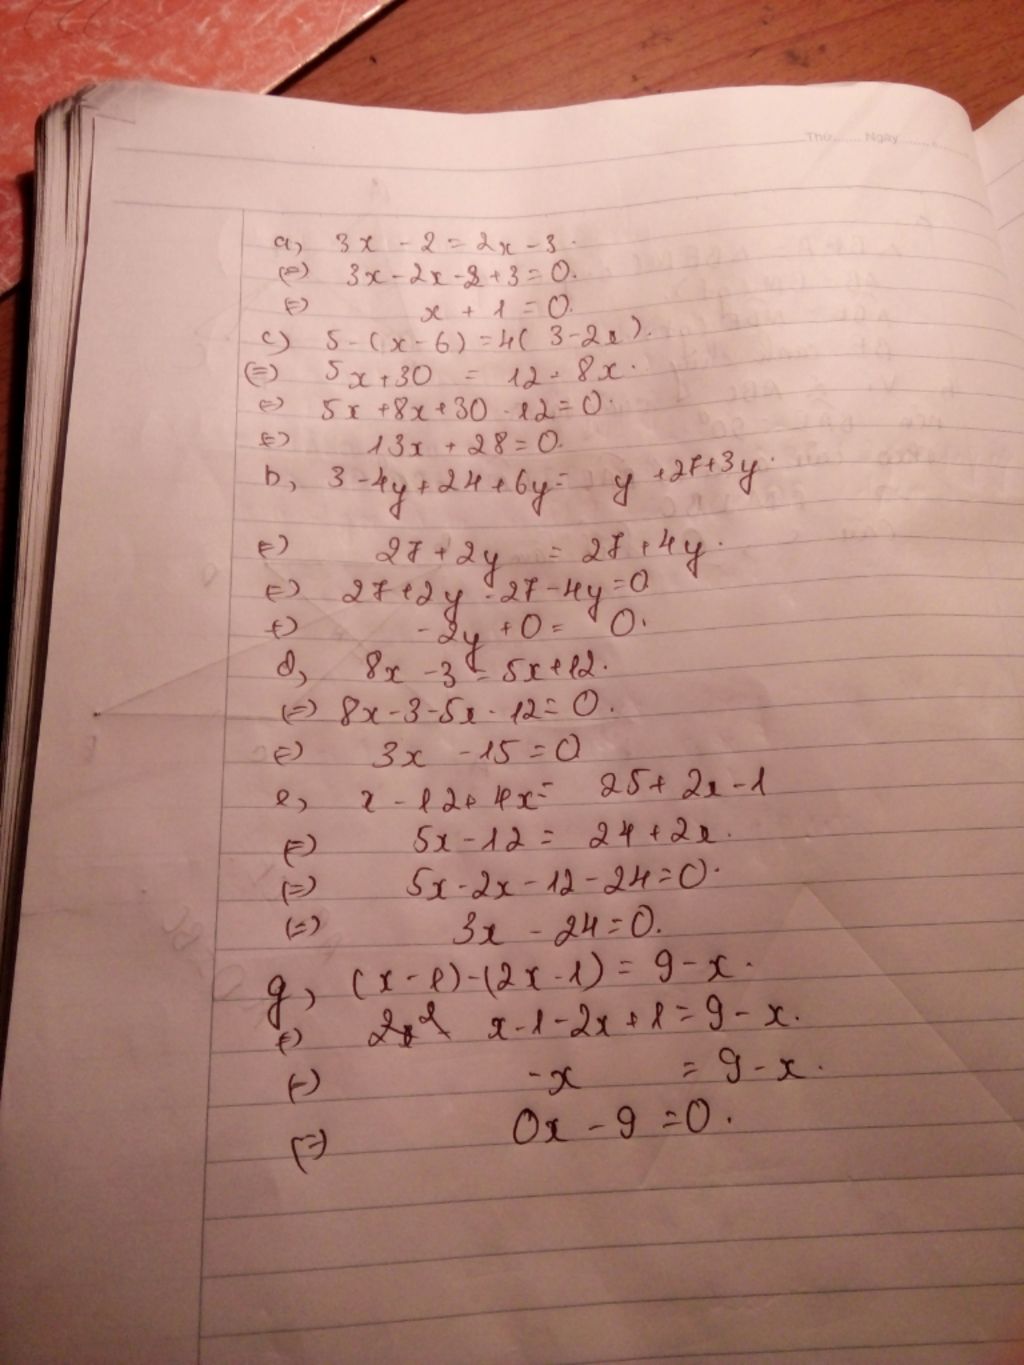 Thứ....... Ngày.......
a, 3x - 2 = 2x - 3.
(=) 3x - 2x - 2 + 3 = 0.
(=) x + 1 = 0.
c) 5 - (x - 6) = 4( 3 - 2x).
(=) 5x + 30 = 12 - 8x.
(=) 5x + 8x + 30 - 12 = 0.
(=) 13x + 28 = 0.
b, 3 - 4y + 24 + 6y = y + 27 + 3y.
(=) 27 + 2y = 27 + 4y.
(=) 27 + 2y - 27 - 4y = 0
(=) -2y + 0 = 0.
d, 8x - 3 = 5x + 12.
(=) 8x - 3 - 5x - 12 = 0.
(=) 3x - 15 = 0
e, x - 12 + 4x = 25 + 2x - 1
(=) 5x - 12 = 24 + 2x.
(=) 5x - 2x - 12 - 24 = 0.
(=) 3x - 24 = 0.
g, (x - 1) - (2x - 1) = 9 - x.
(=) x - 1 - 2x + 1 = 9 - x.
(=) -x = 9 - x.
(=) 0x - 9 = 0.